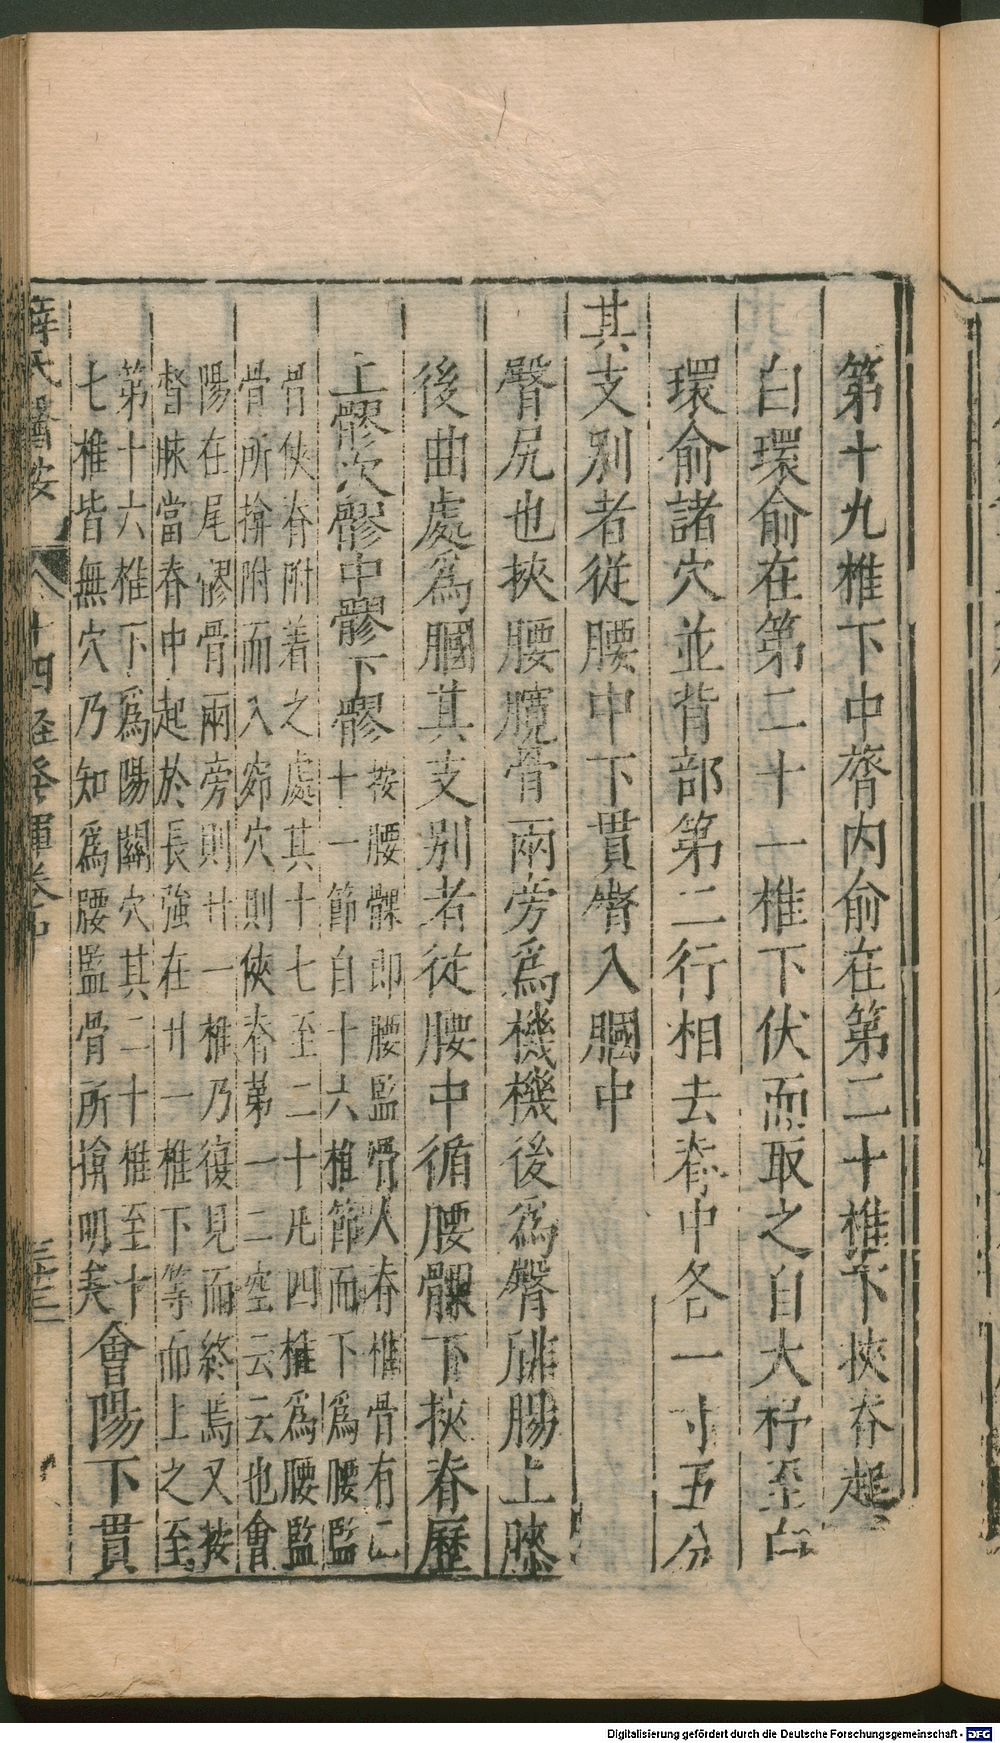 第十九椎下中膂内俞在第二十椎下挾脊起
白環俞在第二十一椎下伏而取之自大杼至白
環俞諸穴並背部第二行相去脊中各一寸五分
其支別者從腰中下貫臀入膕中
臀尻也挾腰髖骨兩旁爲機機後爲臀腓腸上膝
後曲處爲膕其支別者從腰中循腰髁下挾脊歷
上髎次髎中髎下髎
按腰髁即腰監骨人脊椎骨有二
十一節自十六椎節而下爲腰監
骨俠脊附着之處其十七至二十凡四椎爲腰監
骨所揜附而入窌穴則俠脊第一二空云云也會
陽在尾髎骨兩旁則廿一椎乃復見而終焉又按
督脉當脊中起於長強在廿一椎下等而上之至
第十六椎下爲陽關穴其二十椎至十
七椎皆無穴乃知爲腰監骨所揜明矣
會陽下貫
薛氏醫按
十四經發揮卷中
三十三
Digitalisierung gefördert durch die Deutsche Forschungsgemeinschaft - DFG